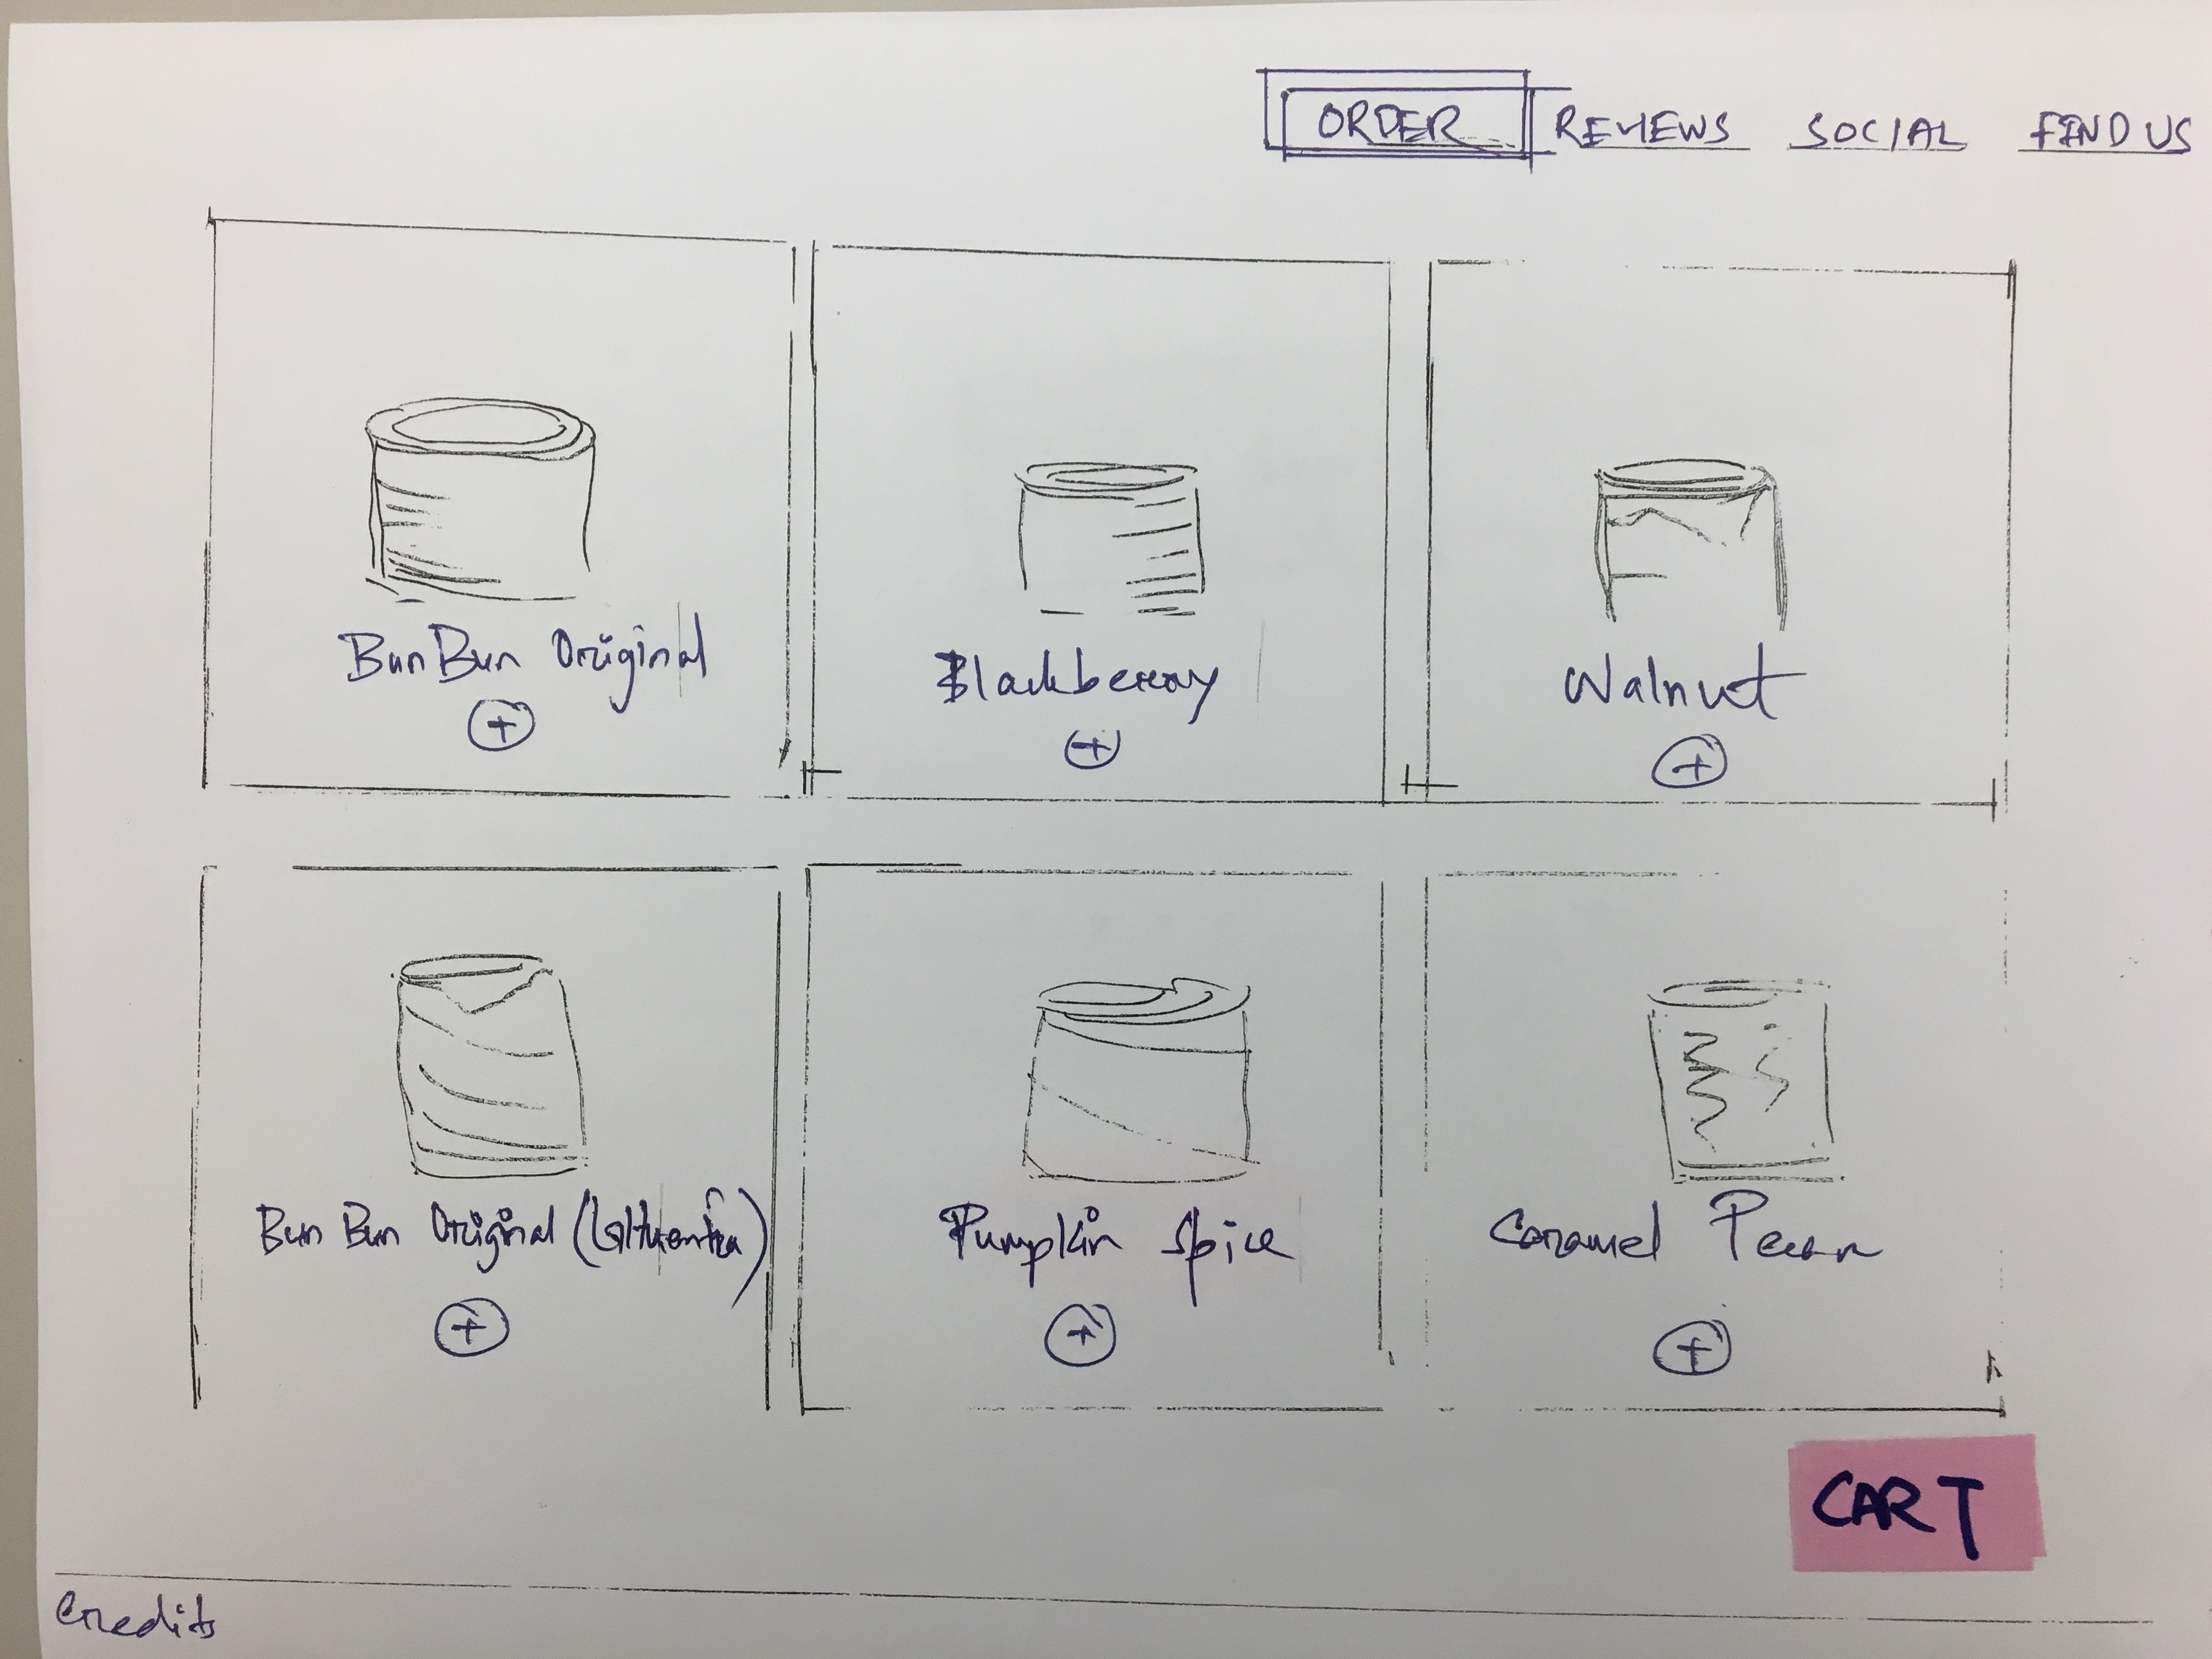 ORDER REVIEWS SOCIAL FIND US
BunBun Original
Blackberry
Walnut
+
+
+
Bun Bun Original (
Pumpkin Spice
Caramel Pecan
+
+
+
CART
Credits